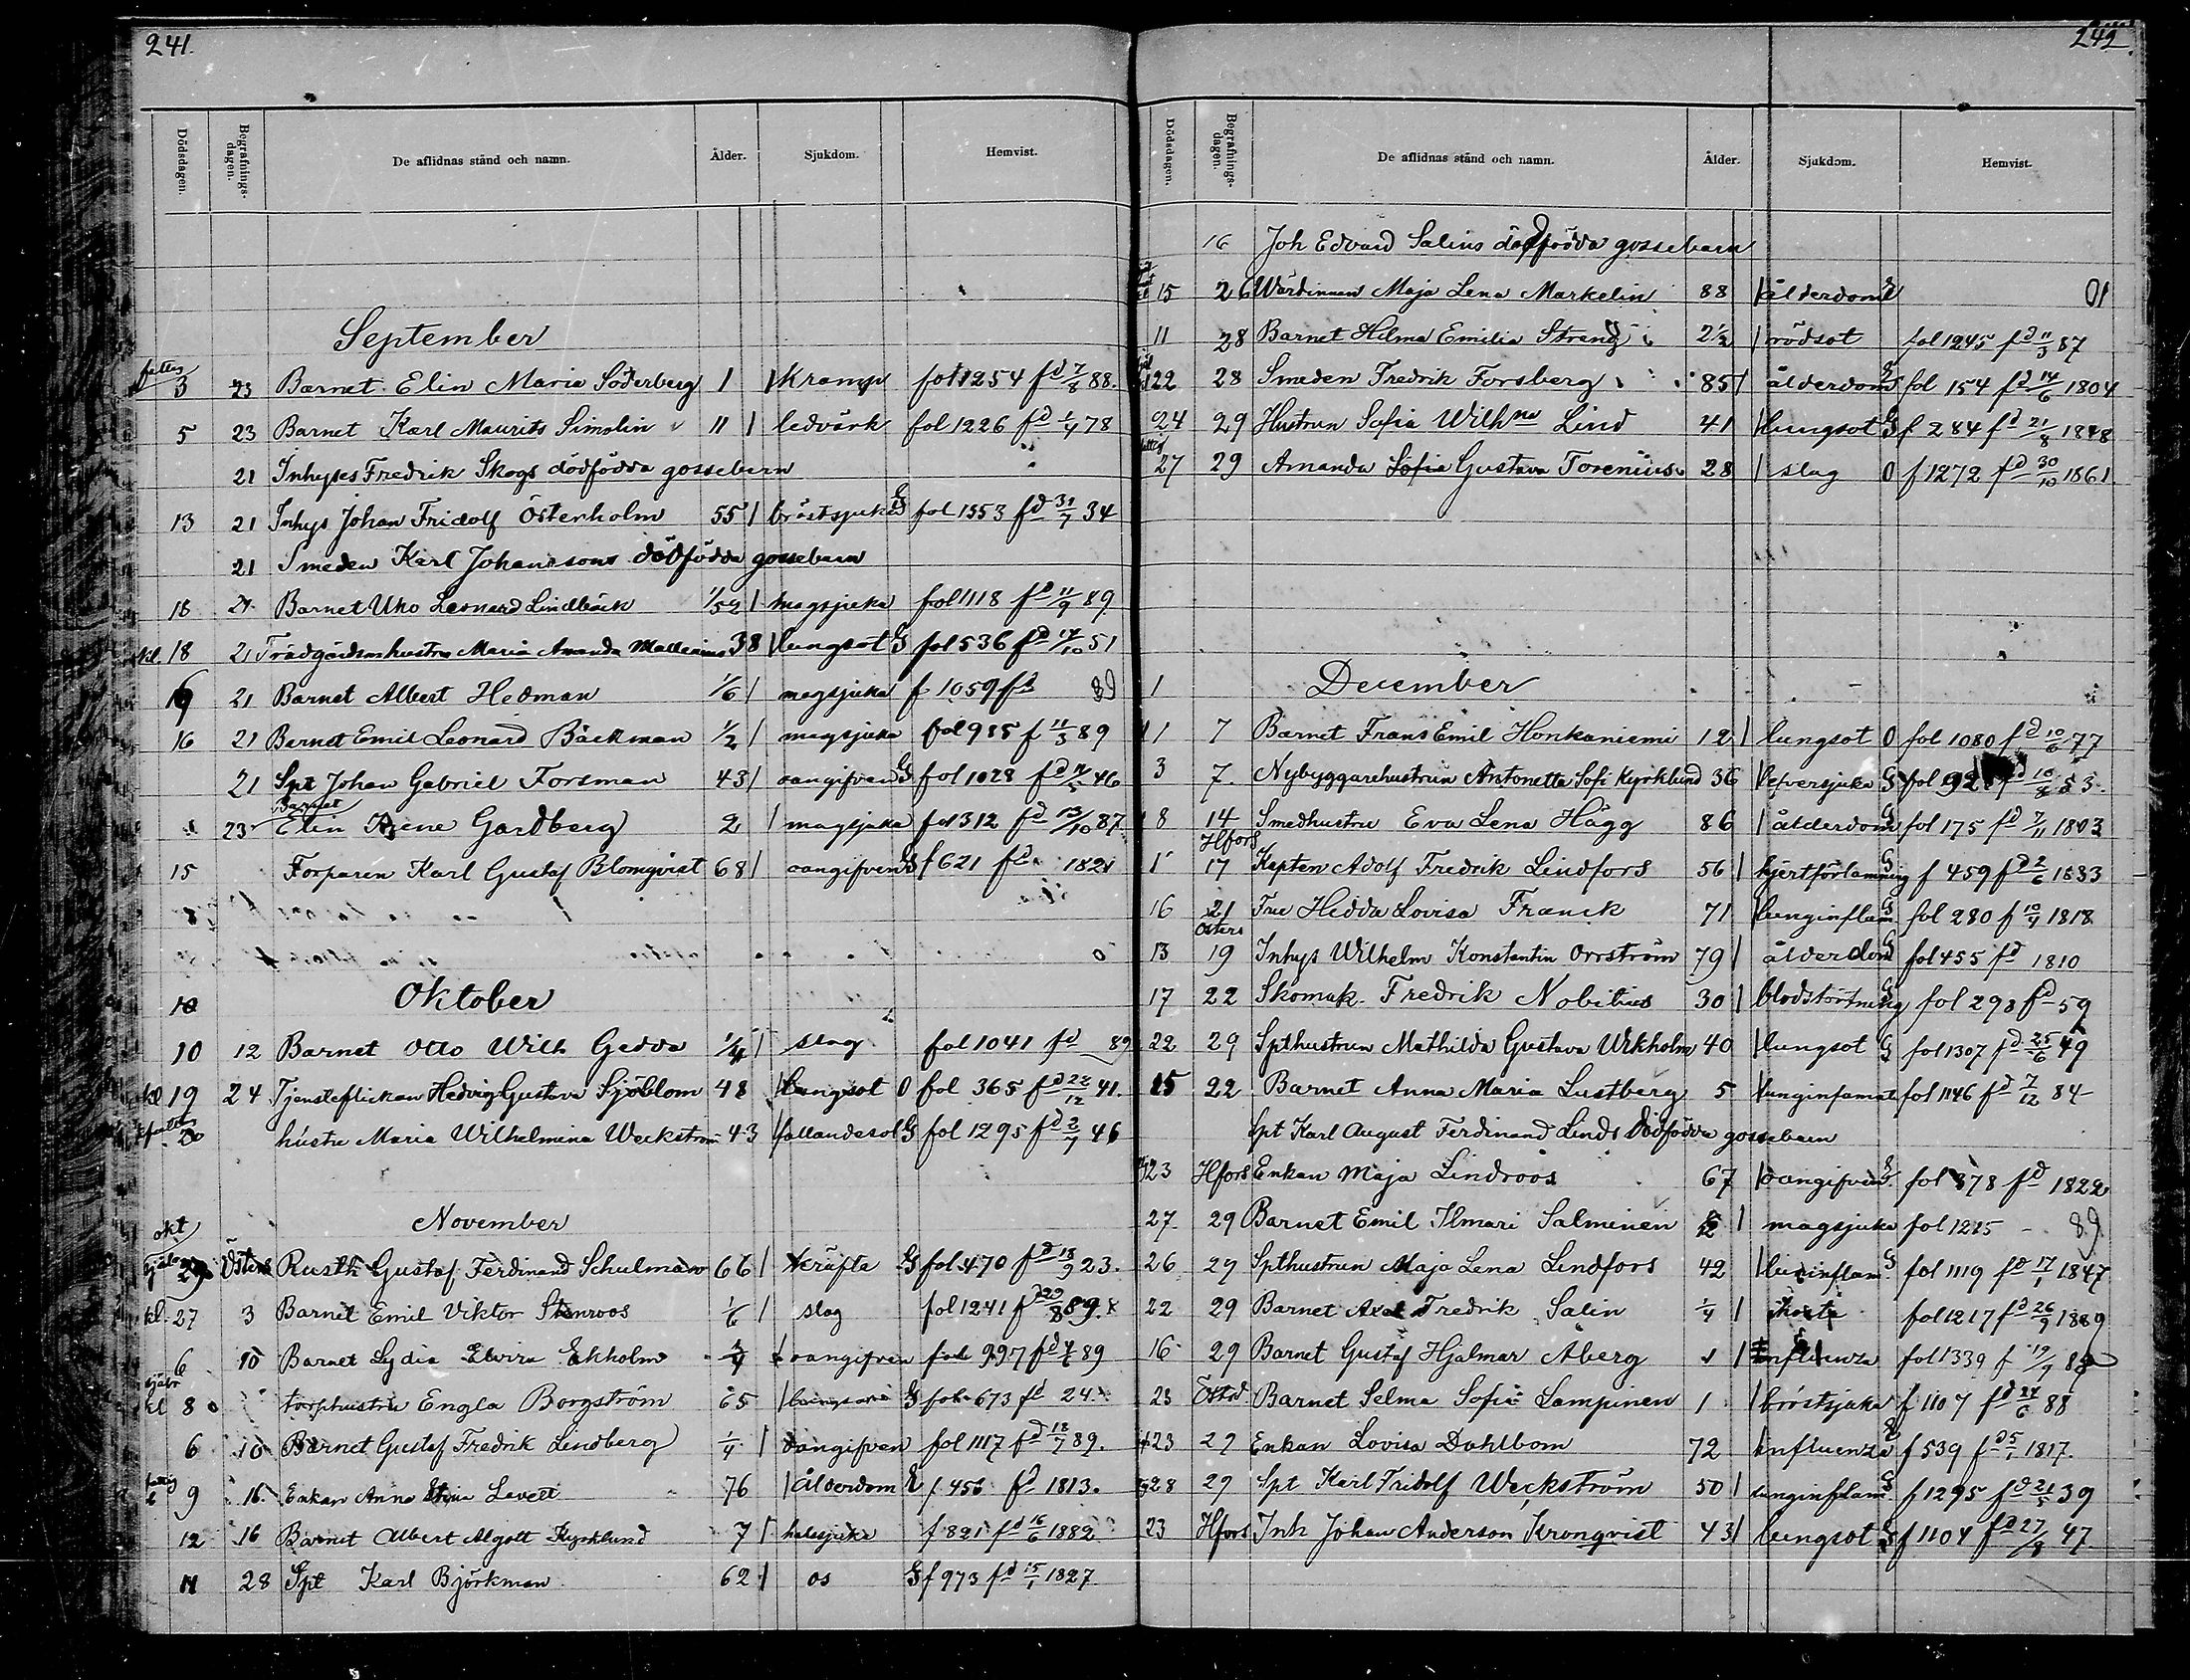 241.
Dödsdagen. Begrafnings-dagen. De aflidnas stånd och namn. Ålder. Sjukdom. Hemvist.
September
3 23 Barnet Elin Maria Söderberg 1 Kramp fol 1254 fd 7/8 88.
5 23 Barnet Karl Maurits Simolin 11 ledvärk fol 1226 fd 1/4 78
21 Inhyses Fredrik Skogs dödfödda gossebarn
13 21 Inhys Johan Fridolf Österholm 55 bröstsjuka G fol 1353 fd 31/7 34
21 Smeden Karl Johanssons dödfödda gossebarn
18 21 Barnet Uno Leonard Lindbäck 1/52 magsjuka fol 1118 fd 11/9 89
kl. 18 21 Trädgårdsm hustru Maria Amanda 38 lungsot G fol 536 fd 17/10 51
21 Barnet Albert Hedman 1/6 magsjuka f 1059 fd 89
16 21 Barnet Emil Leonard Bäckman 1/2 magsjuka fol 985 f 11/3 89
21 Spt Johan Gabriel Forsman 43 oangifven G fol 1028 fd 46
23 Barnet Elin Irene Gardberg 2 magsjuka fol 312 fd 13/10 87
15 Forparen Karl Gustaf Blomqvist 68 oangifven G f 621 fd 1821
Oktober
10 12 Barnet Otto Wilh Gedda 1/4 slag fol 1041 fd 89
kl 19 24 Tjensteflickan Hedvig Gustava Sjöblom 48 lungsot O fol 365 fd 22/12 41.
20 hustru Maria Wilhelmina Weckström 43 fallandesot G fol 1295 fd 2/7 46
November
okt
29 Österm Rusth Gustaf Ferdinand Schulman 66 kräfta G fol 470 fd 18/9 23.
kl. 27 3 Barnet Emil Viktor Stenroos 1/6 slag fol 1241 fd 29/8 89.
6 10 Barnet Lydia Elvira Ekholm 3/4 oangifven fol 997 fd 89
kl 8 torphustru Engla Borgström 65 G fol 673 fd 24
6 10 Barnet Gustaf Fredrik Lindberg 1/4 oangifven fol 1117 fd 18/7 89.
fattig 9 16 Enkan Anna Stina Lavell 76 Ålderdom E f 456 fd 1813.
12 16 Barnet Albert Algott Kyrklund 7 halssjuka f 821 fd 16/6 1882
11 28 Spt Karl Björkman 62 os G f 973 fd 15/1 1827
242.
Dödsdagen. Begrafnings-dagen. De aflidnas stånd och namn. Ålder. Sjukdom. Hemvist.
16 Joh Edvard Salins dödfödda gossebarn
15 26 Wärdinnan Maja Lena Markelin 88 ålderdom 01
11 28 Barnet Hilma Emilia Strang 2 1/2 rödsot fol 1245 fd 11/3 87
22 28 Smeden Fredrik Forsberg 85 ålderdom G fol 154 fd 14/6 1804
24 29 Hustrun Sofia Wilhna Lind 41 lungsot G f 284 fd 21/8 1848
27 29 Amanda Sofia Gustava Torenius 28 slag O f 1272 fd 30/10 1861
December
1 7 Barnet Frans Emil Honkaniemi 12 lungsot O fol 1080 fd 10/6 77
3 7 Nybyggarehustrun Antonetta Sofi Kyrklund 36 lefversjuka G fol 53.
8 14 Smedhustru Eva Lena Hägg 86 ålderdom G fol 175 fd 7/11 1803
1 Hfors 17 Kapten Adolf Fredrik Lindfors 56 hjertförlamning G f 459 fd 2/6 1833
16 21 Fru Hedda Lovisa Franck 71 lunginflam G fol 280 f 10/4 1818
13 Österm 19 Inhys Wilhelm Konstantin Orrström 79 ålderdom G fol 455 fd 1810
17 22 Skomak. Fredrik Nobilius 30 blodstörtning G fol 298 fd 59
22 29 Spthustrun Mathilda Gustava Wikholm 40 lungsot G fol 1307 fd 25/6 49
15 22 Barnet Anna Maria Lustberg 5 lunginfamat fol 1146 fd 7/12 84
Spt Karl August Ferdinand Linds Dödfödda gossebarn
23 Hfors Enkan Maja Lindroos 67 oangifven G fol 878 fd 1822
27 29 Barnet Emil Ilmari Salminen magsjuka fol 1215 89
26 29 Spthustrun Maja Lena Lindfors 42 lunginflam G fol 1119 fd 17/1 1847
22 29 Barnet Axel Fredrik Salin 1/4 fol 1217 fd 26/9 1889
16 29 Barnet Gustaf Hjalmar Åberg 1 Influenza fol 1339 f 19/9 88
23 Barnet Selma Sofia Lampinen 1 bröstsjuka f 1107 fd 24/6 88
23 29 Enkan Lovisa Dahlbom 72 Influenza G f 539 fd 5/1 1817.
28 29 Spt Karl Fridolf Weckström 50 lunginflam G f 1295 fd 21/5 39
23 Hfors Inh Johan Anderson Kronqvist 43 lungsot G f 1104 fd 27/8 47